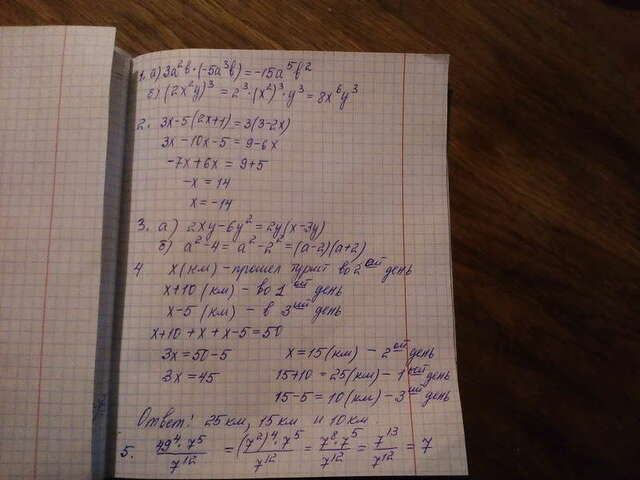 1. а) 3a²b·(-5a³b) = -15a⁵b²
б) (2x²y)³ = 2³·(x²)³·y³ = 8x⁶y³
2. 3x-5(2x+1) = 3(3-2x)
3x-10x-5 = 9-6x
-7x+6x = 9+5
-x = 14
x = -14
3. а) 2xy-6y² = 2y(x-3y)
б) a²-4 = a²-2² = (a-2)(a+2)
4. x(км) - прошел турист во 2ой день
x+10 (км) - во 1ый день
x-5 (км) - в 3ий день
x+10+x+x-5=50
3x = 50-5 x=15(км) - 2ой день
3x = 45 15+10 = 25(км) - 1ый день
15-5 = 10(км) - 3ий день
Ответ: 25км, 15км и 10км
5. 49⁴·7⁵/7¹² = (7²)⁴·7⁵/7¹² = 7⁸·7⁵/7¹² = 7¹³/7¹² = 7